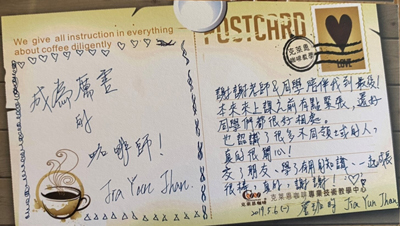 We give all instruction in everything
about coffee diligently
成為厲害
的
咖啡師!
Jia Yun Jhan.
POSTCARD
克萊蕭
咖啡教學
LOVE
謝謝老師&同學陪伴我到最後!
本來來上課之前有點緊張,還好
同學們都很好相處。
也認識了很多不同領域的人,
真的很開心!
交了朋友、學了有用知識、一起成長
很棒,真的,謝謝!
專業技術教學中心
2019.5.6(一)
Jia Yun Jhan